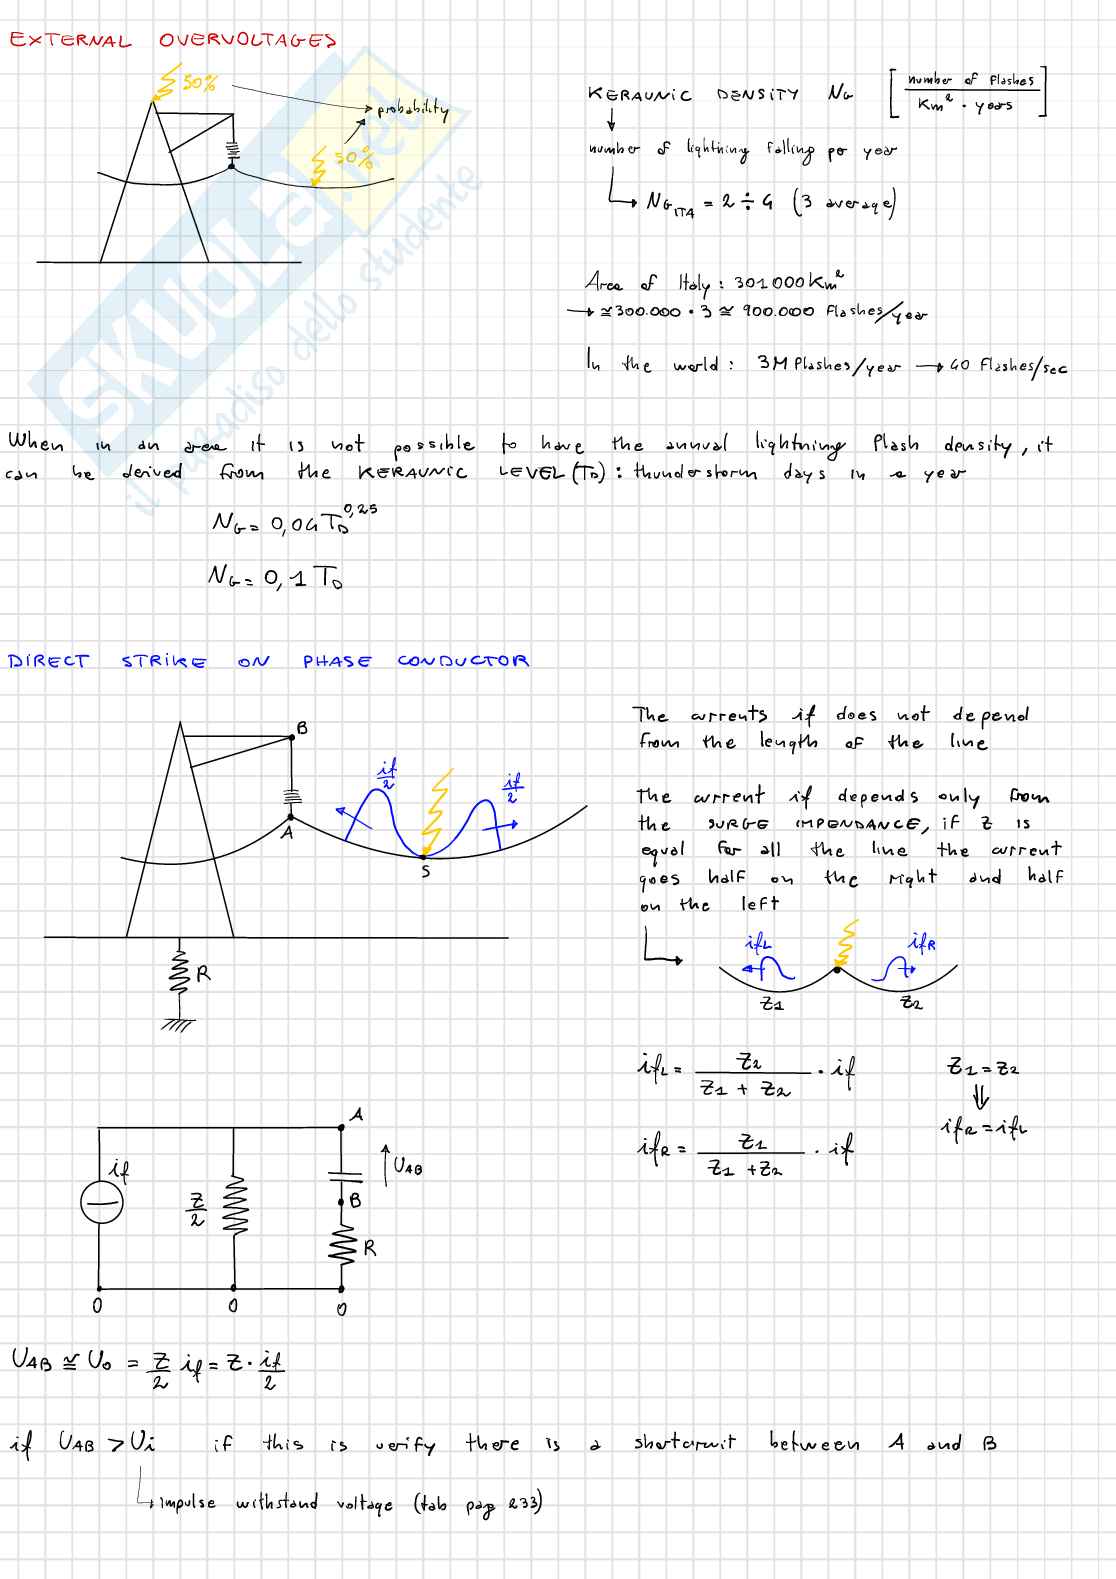 EXTERNAL OVERVOLTAGES
50%
probability
50%
KERAUNIC DENSITY NG [number of flashes / Km² · years]
number of lightning falling per year
NG ITA = 2 ÷ 4 (3 average)
Area of Italy : 301000 Km²
→ ≅ 300.000 · 3 ≅ 900.000 Flashes/year
In the world : 3M Flashes/year → 40 Flashes/sec
When in an area it is not possible to have the annual lightning flash density, it
can be derived from the KERAUNIC LEVEL (TD) : thunderstorm days in a year
NG = 0,04 TD^0,25
NG = 0,1 TD
DIRECT STRIKE ON PHASE CONDUCTOR
B
if/2
if/2
A
S
R
The currents if does not depend
from the length of the line
The current if depends only from
the SURGE IMPENDANCE, if Z is
equal for all the line the current
goes half on the right and half
on the left
ifL
ifR
Z1
Z2
ifL = Z2 / (Z1 + Z2) · if
Z1 = Z2
⇓
ifR = ifL
ifR = Z1 / (Z1 + Z2) · if
A
if
UAB
Z/2
B
R
0
0
0
UAB ≅ U0 = Z/2 if = Z · if/2
if UAB > Ui if this is verify there is a shortcircuit between A and B
impulse withstand voltage (tab pag 233)
SKUOLA.net
il paradiso dello studente